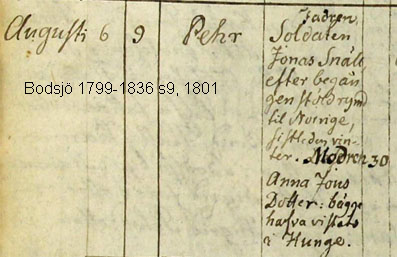 Fadren
Augusti 6 9 Pehr Soldaten
Jonas Snäll,
efter begån
gen stöld rymd
til Norrige,
sistleden vin-
ter. Modren 30
Anna Jons
Dotter: bägge
hafva vistats
i Hunge.
Bodsjö 1799-1836 s9, 1801